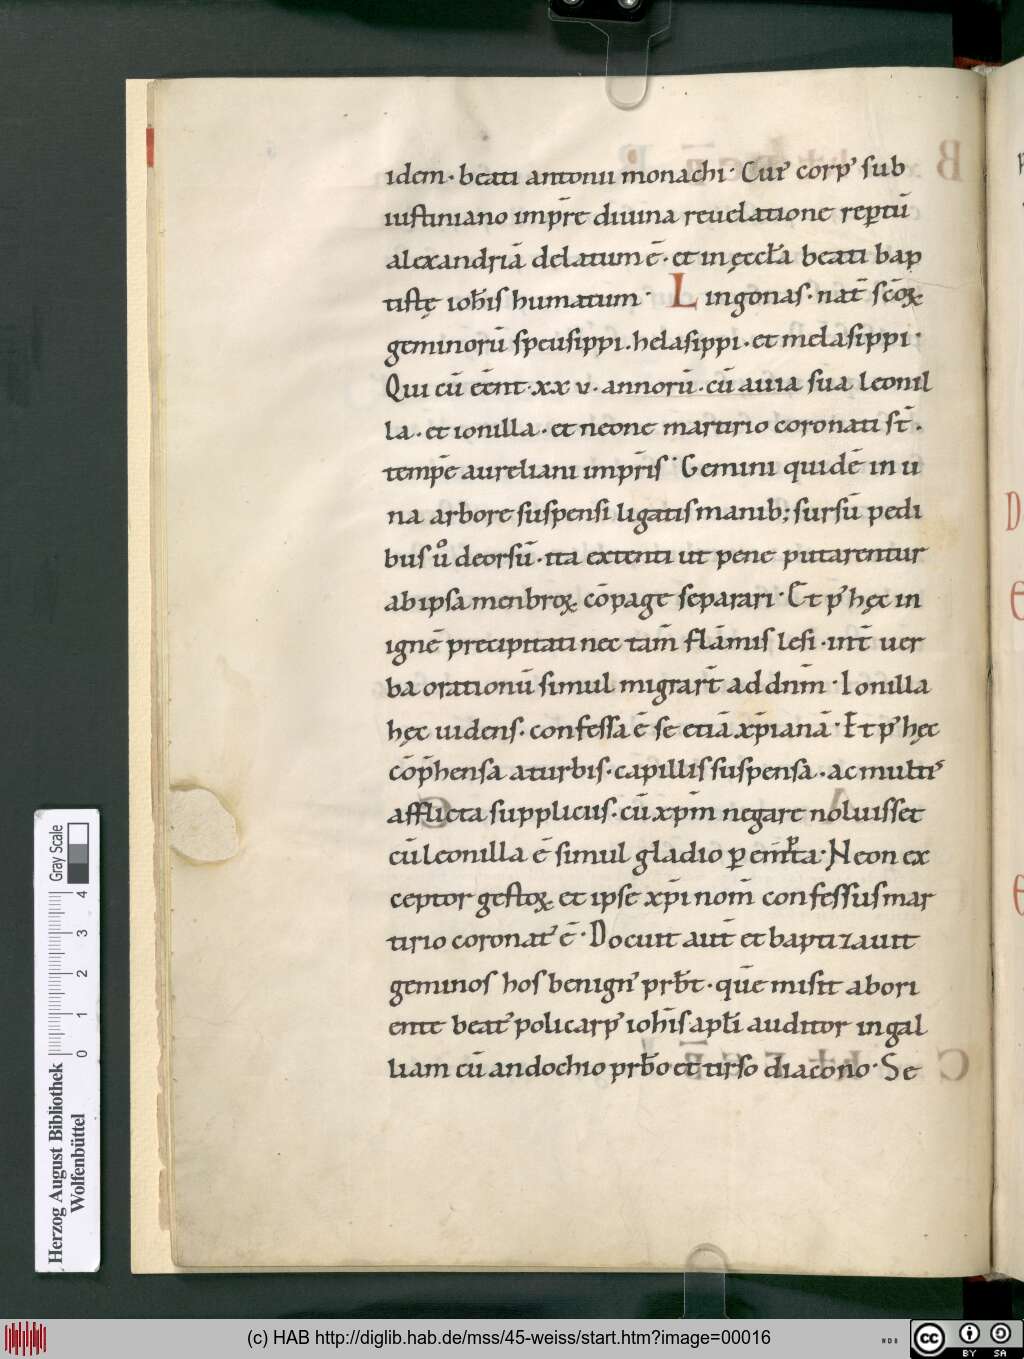 idem · beati antonii monachi · Cuiꝰ corpꝰ sub
iustiniano imp̄re diuina reuelatione rep̱tū
alexandriā delatum ē · et in ęccl̄a beati bap
tistę ioh̄is humatum · Lingonas · nat̄ sc̄oꝝ
geminorū speusippi · helasippi · et melasippi ·
Qui cū eēnt · xx v · annorū · cū auia sua leonil
la · et ionilla · et neone martirio coronati st̄ ·
temp̄e aureliani imp̄ris · Gemini quidē in u
na arbore suspensi ligatis manib; sursū pedi
bus ůo deorsū · ita extenti ut pene putarentur
ab ipsa menbroꝝ cōpage separari · Et pꝰ hęc in
ignē precipitati nec tam̄ flāmis lesi · int̄ uer
ba orationū simul migrart̄ ad dn̄m · Ionilla
hęc uidens · confessa ē se etiā xp̄ianā · Et pꝰ hęc
cōp̄hensa a turbis · capillis suspensa · ac multiˢ
afflicta suppliciis · cū xp̄m negare noluisset
cū leonilla ē simul gladio ꝑempta · Neon ex
ceptor gestoꝝ et ipse xp̄i nom̄ confessus mar
tirio coronatꝰ ē · Docuit aut̄ et baptizauit
geminos hos benignꝰ prb̄t · quē misit ab ori
ente beatꝰ policarpꝰ ioh̄is apl̄i auditor in gal
liam cū andochio prb̄o et tirso diacono · Se
Herzog August Bibliothek
Wolfenbüttel
0 1 2 3 4
Gray Scale
(c) HAB http://diglib.hab.de/mss/45-weiss/start.htm?image=00016
cc BY SA